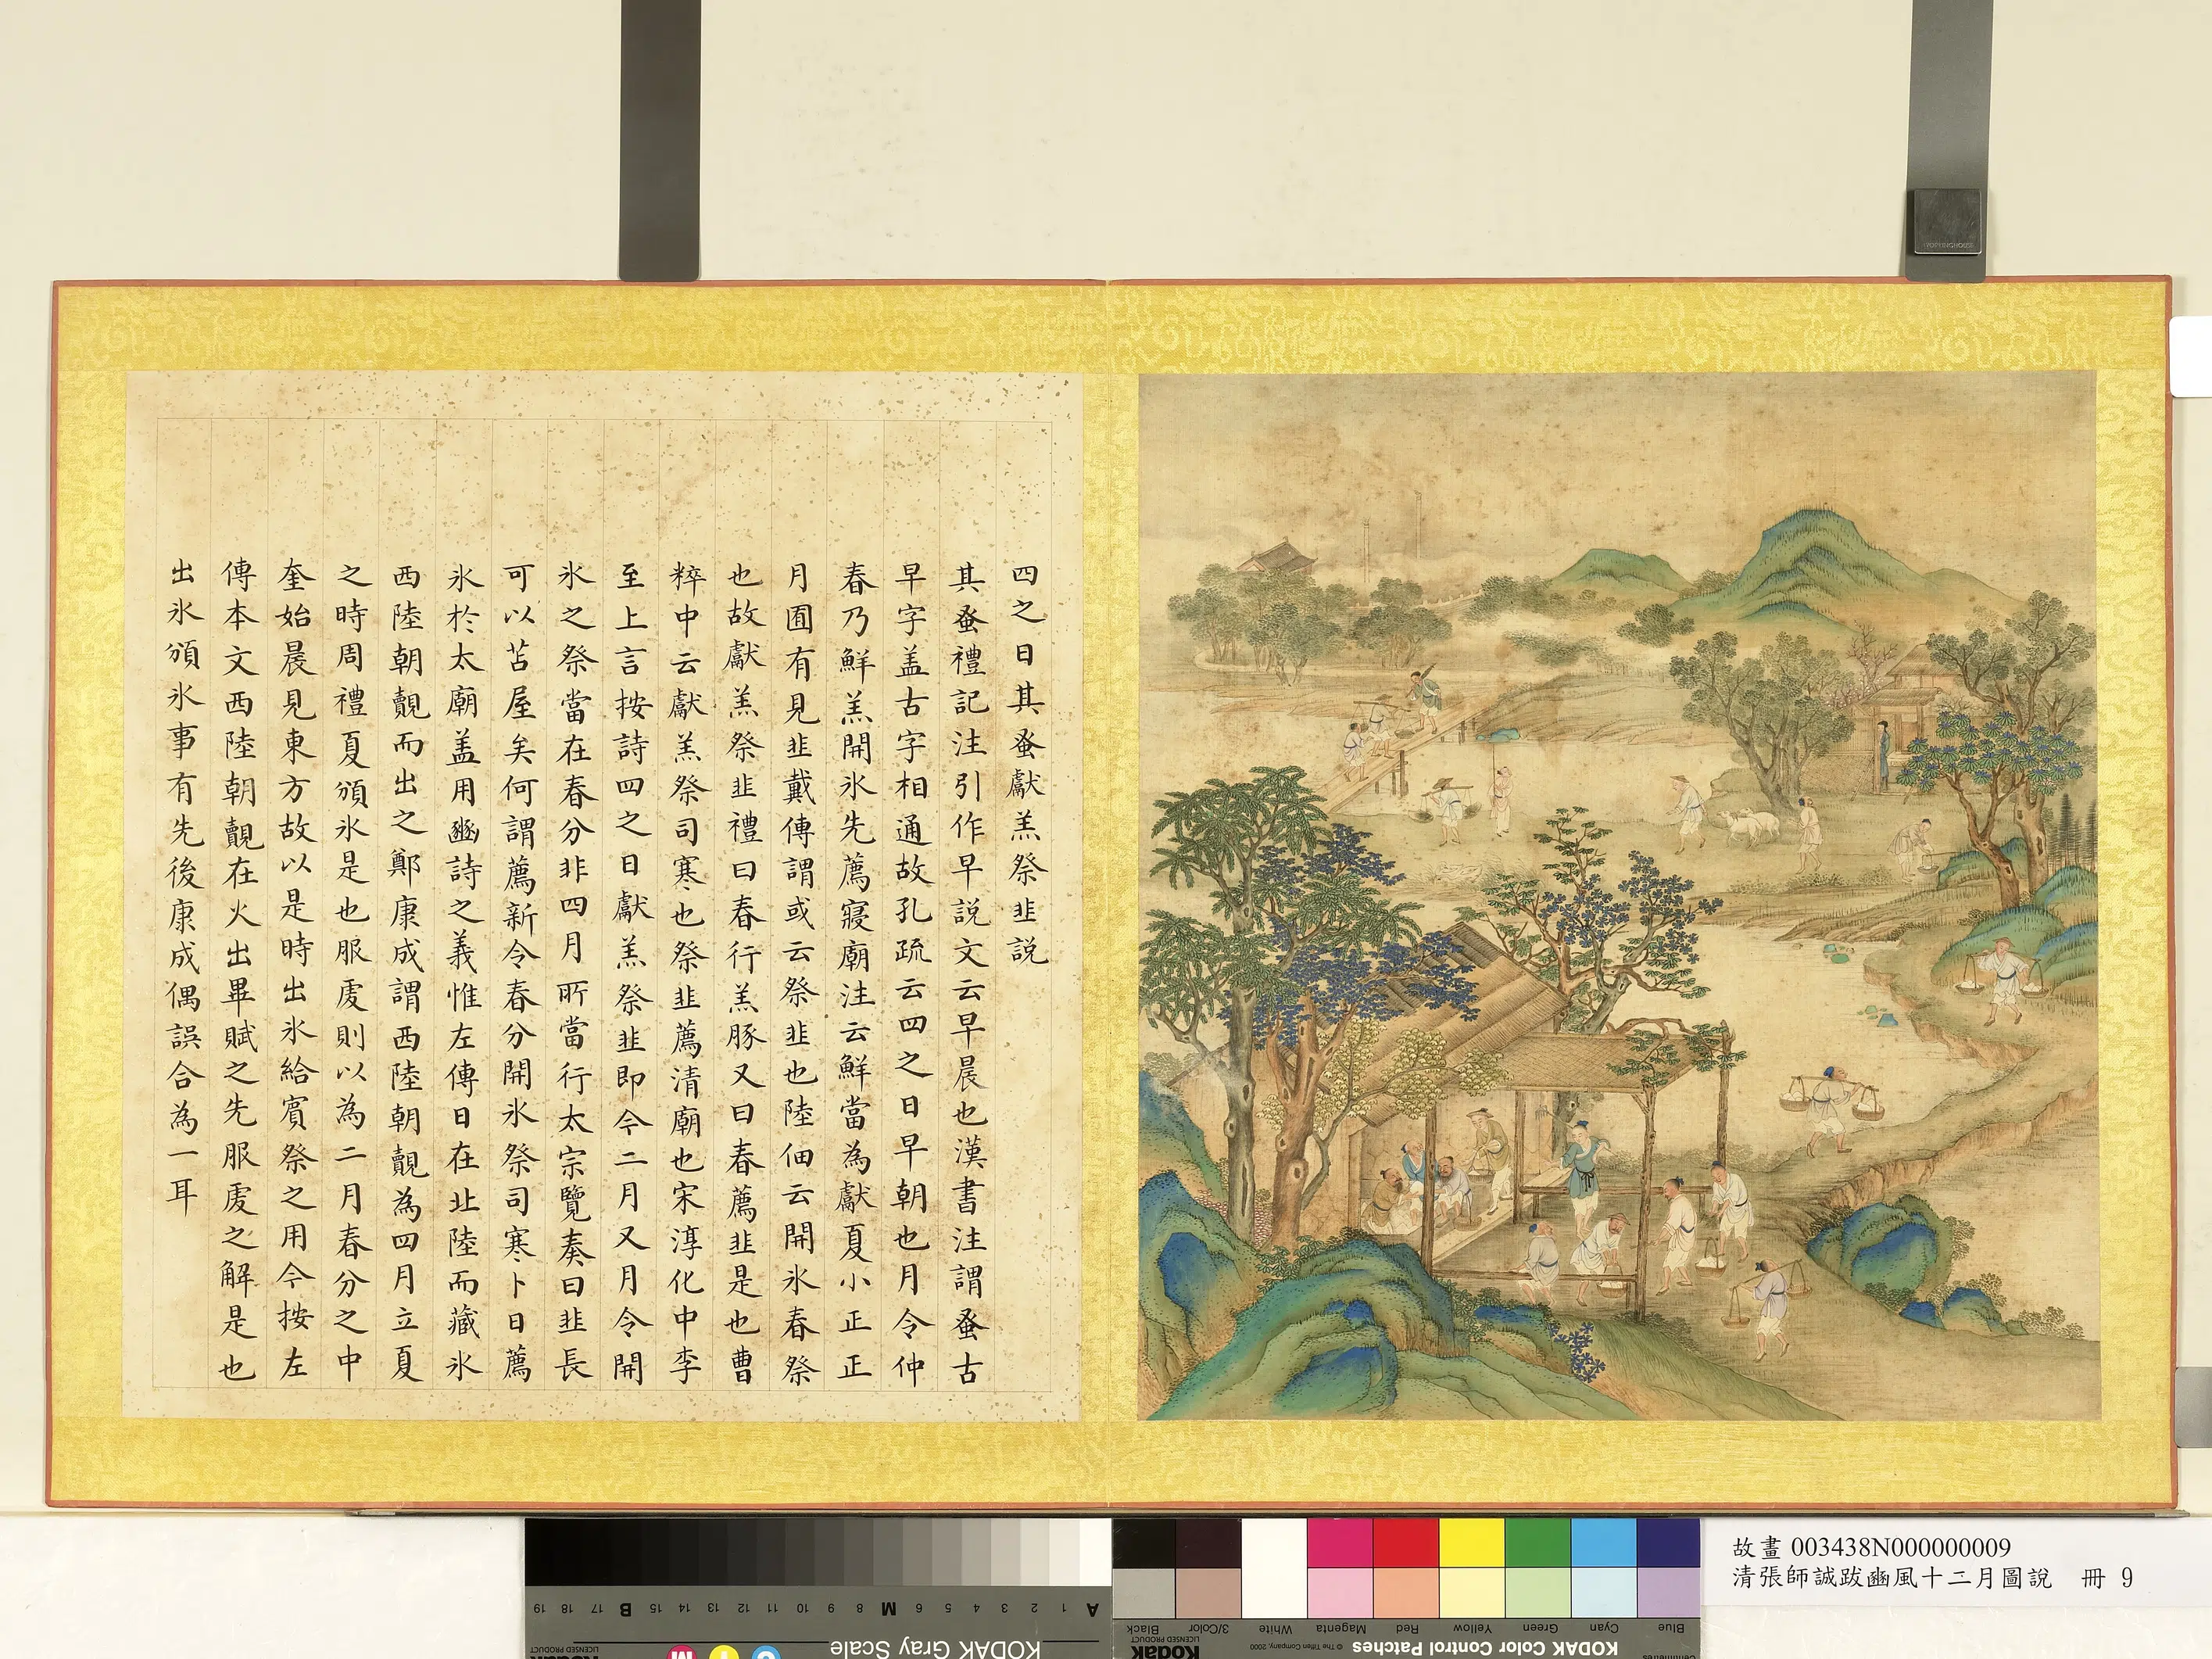 四之日其蚤獻羔祭韭説
其蚤禮記注引作早説文云早晨也漢書注謂蚤古
早字盖古字相通故孔疏云四之日早朝也月令仲
春乃鮮羔開氷先薦寢廟注云鮮當為獻夏小正正
月囿有見韭戴傳謂或云祭韭也陸佃云開氷春祭
也故獻羔祭韭禮曰春行羔豚又曰春薦韭是也曹
粹中云獻羔祭司寒也祭韭薦清廟也宋淳化中李
至上言按詩四之日獻羔祭韭即今二月又月令開
氷之祭當在春分非四月所當行太宗覽奏曰韭長
可以苫屋矣何謂薦新今春分開氷祭司寒卜日薦
氷於太廟盖用豳詩之義惟左傳日在北陸而藏氷
西陸朝覿而出之鄭康成謂西陸朝覿為四月立夏
之時周禮夏頒氷是也服虔則以為二月春分之中
奎始晨見東方故以是時出氷給賓祭之用今按左
傳本文西陸朝覿在火出畢賦之先服虔之解是也
出氷頒氷事有先後康成偶誤合為一耳
故畫 003438N000000009
清張師誠跋豳風十二月圖說 冊 9
KODAK Gray Scale
KODAK Color Control Patches
© The Tiffen Company, 2000
Kodak
LICENSED PRODUCT
Blue Cyan Green Yellow Red Magenta White 3/Color Black
A 1 2 3 4 5 6 M 8 9 10 11 12 13 14 15 B 17 18 19